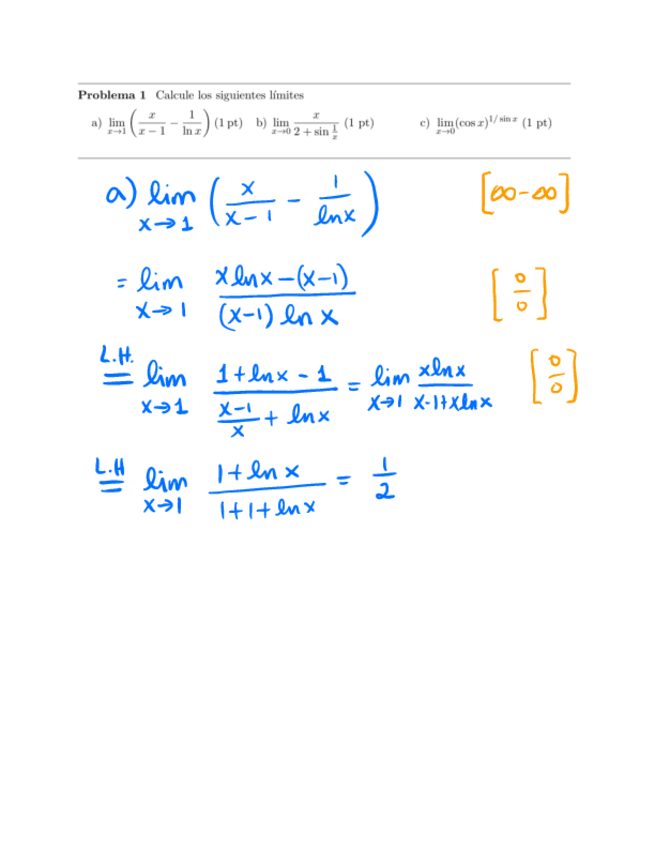 Problema 1 Calcule los siguientes límites
a) lim x→1 (x/(x−1) − 1/ln x) (1 pt) b) lim x→0 x/(2 + sin 1/x) (1 pt) c) lim x→0 (cos x)^{1/sin x} (1 pt)
a) lim x→1 (x/(x−1) − 1/lnx) [∞−∞]
= lim x→1 (x lnx−(x−1))/((x−1) ln x) [0/0]
L.H. = lim x→1 (1+lnx − 1)/((x−1)/x + lnx) = lim x→1 xlnx/(x-1+xlnx) [0/0]
L.H = lim x→1 (1+ln x)/(1+1+lnx) = 1/2